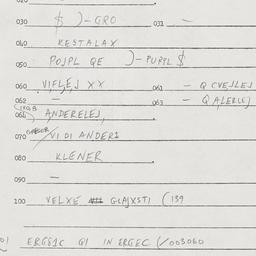 030 $ )-GRO 031 —
040 KESTALAX
050 POJPL QE )-PURPL $
060 VIFLEJ XX 061 — Q CVEJLEJ
062 — 063 — Q ALERLEJ
064 ANDERELEJ,
070 VI DI ANDERS
080 KLENER
090 —
100 VELXE GLAJXSTI (139
IN ERGEC (/003060